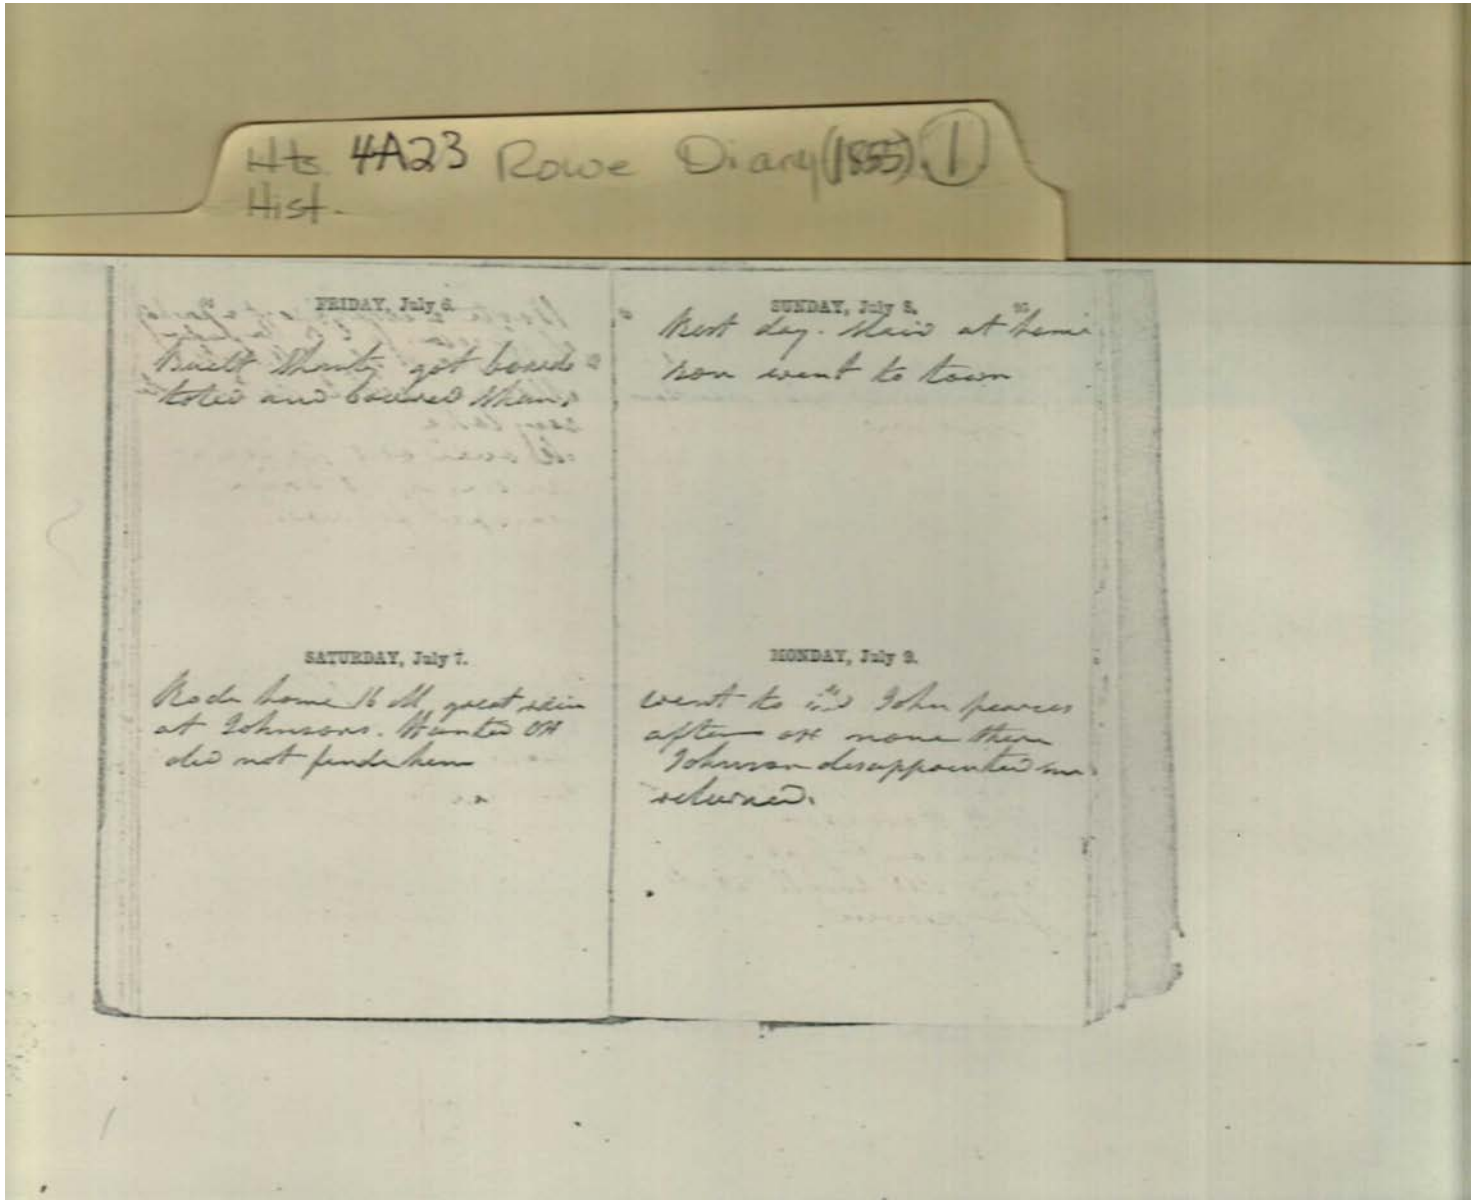 Hts. 4A23 Rowe Diary (1855) 1
Hist.
FRIDAY, July 6.
Built Shanty got boards
and covered Shan
SATURDAY, July 7.
Rode home 16 M great rain
at Johnsons. Hunted OX
did not finde hem
SUNDAY, July 8.
Rest day. Staid at home
went to town
MONDAY, July 9.
went to John pearces
after ox none there
Johnson disappointed me
returned.